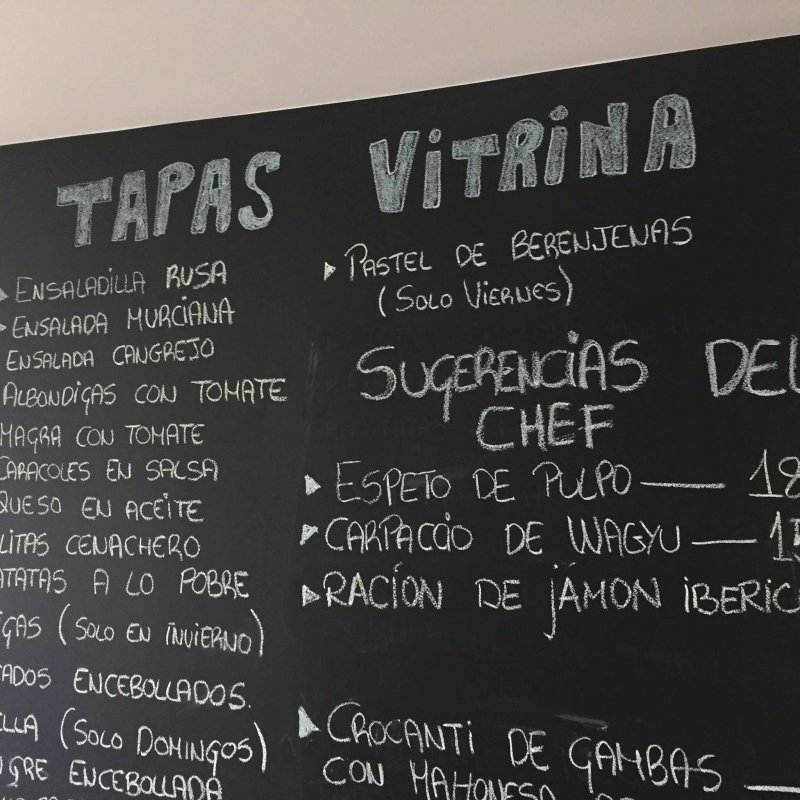 TAPAS VITRINA
ENSALADILLA RUSA
ENSALADA MURCIANA
ENSALADA CANGREJO
ALBONDIGAS CON TOMATE
MAGRA CON TOMATE
CARACOLES EN SALSA
QUESO EN ACEITE
LITAS CENACHERO
ATATAS A LO POBRE
IGAS (SOLO EN INVIERNO)
ADOS ENCEBOLLADOS.
LLA (SOLO DOMINGOS)
GRE ENCEBOLLADA
PASTEL DE BERENJENAS
(SOLO VIERNES)
SUGERENCIAS DEL
CHEF
ESPETO DE PULPO — 18
CARPACCIO DE WAGYU —
RACÍON DE JAMON IBERIC
CROCANTI DE GAMBAS —
CON MAHONESA